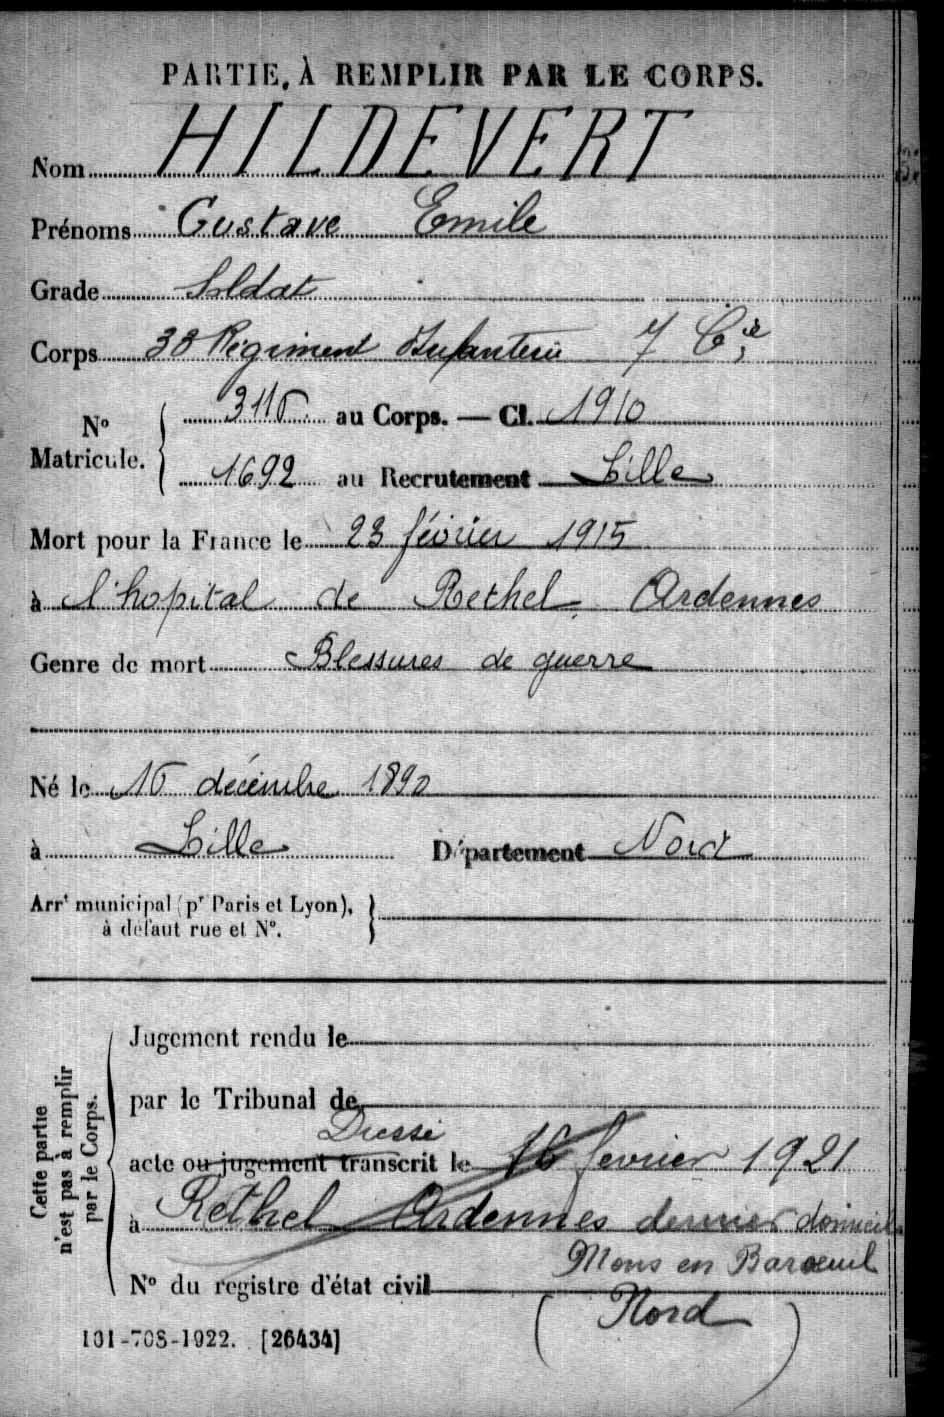 PARTIE À REMPLIR PAR LE CORPS.
Nom HILDEVERT
Prénoms Gustave Emile
Grade Soldat
Corps 38 Régiment Infanterie 7 Cie
No Matricule. { 3116 au Corps. — Cl. 1910
1692 au Recrutement Lille
Mort pour la France le 23 février 1915
à l'hopital de Rethel Ardennes
Genre de mort Blessures de guerre
Né le 16 décembre 1890
à Lille Département Nord
Arrt municipal (pr Paris et Lyon),
à défaut rue et No.
Cette partie
n'est pas à remplir
par le Corps.
Jugement rendu le
par le Tribunal de
Dressé
acte ou jugement transcrit le 16 fevrier 1921
à Rethel Ardennes dernier domicile
Mons en Baroeuil
No du registre d'état civil
(Nord)
101-708-1922. [26434]